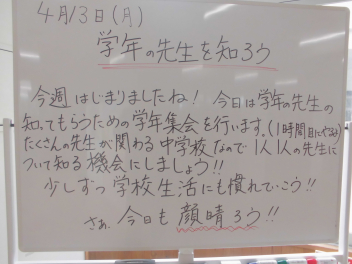 4月13日(月)
学年の先生を知ろう
今週はじまりましたね！ 今日は学年の先生の
知ってもらうための学年集会を行います。(1時間目にやるよ)
たくさんの先生が関わる中学校なので1人1人の先生に
ついて知る機会にしましょう!!
少しずつ学校生活にも慣れていこう!!
さぁ、今日も顔晴ろう!!